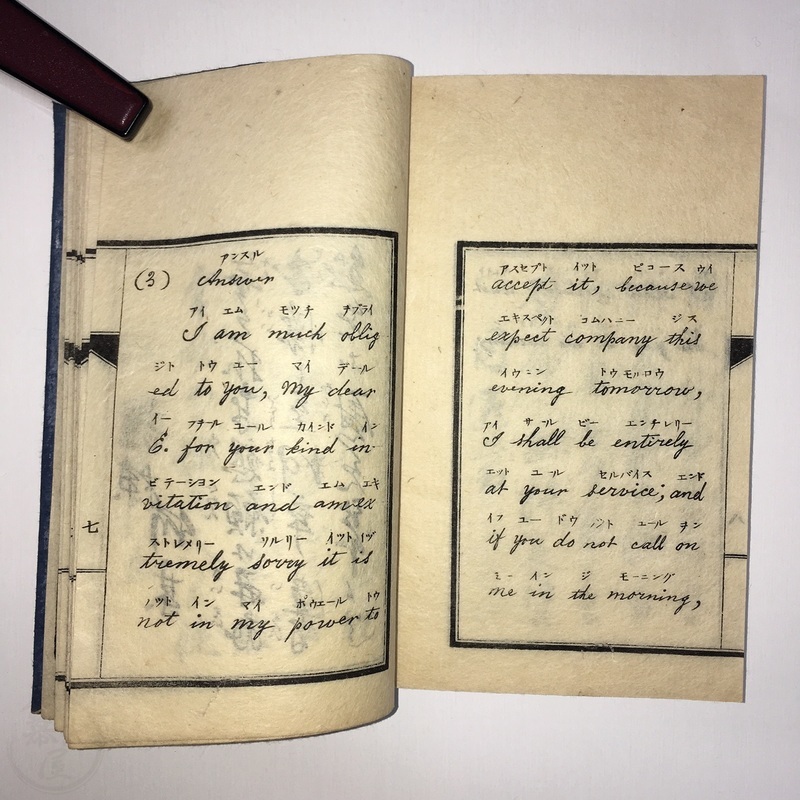 アンスル
(3) Answer
アイ エム モツチ ヲブライ
I am much oblig
ジト トウ ユー マイ デール
ed to you, My dear
イー フヲル ユール カインド イン
E. for your kind in-
ビテーション エンド エム エキ
vitation and am ex
ストレメリー ソルリー イツト イヅ
tremely sorry it is
ノツト イン マイ ポウエール トウ
not in my power to
七
アスセプト イツト ビコース ウイ
accept it, because we
エキスペクト コムハニー ジス
expect company this
イウニン トウモルロウ
evening tomorrow,
アイ サール ビー エンチレリー
I shall be entirely
エット ユール セルバイス エンド
at your service; and
イフ ユー ドウ ノット コール ヲン
if you do not call on
ミー イン ジ モーニング
me in the morning,